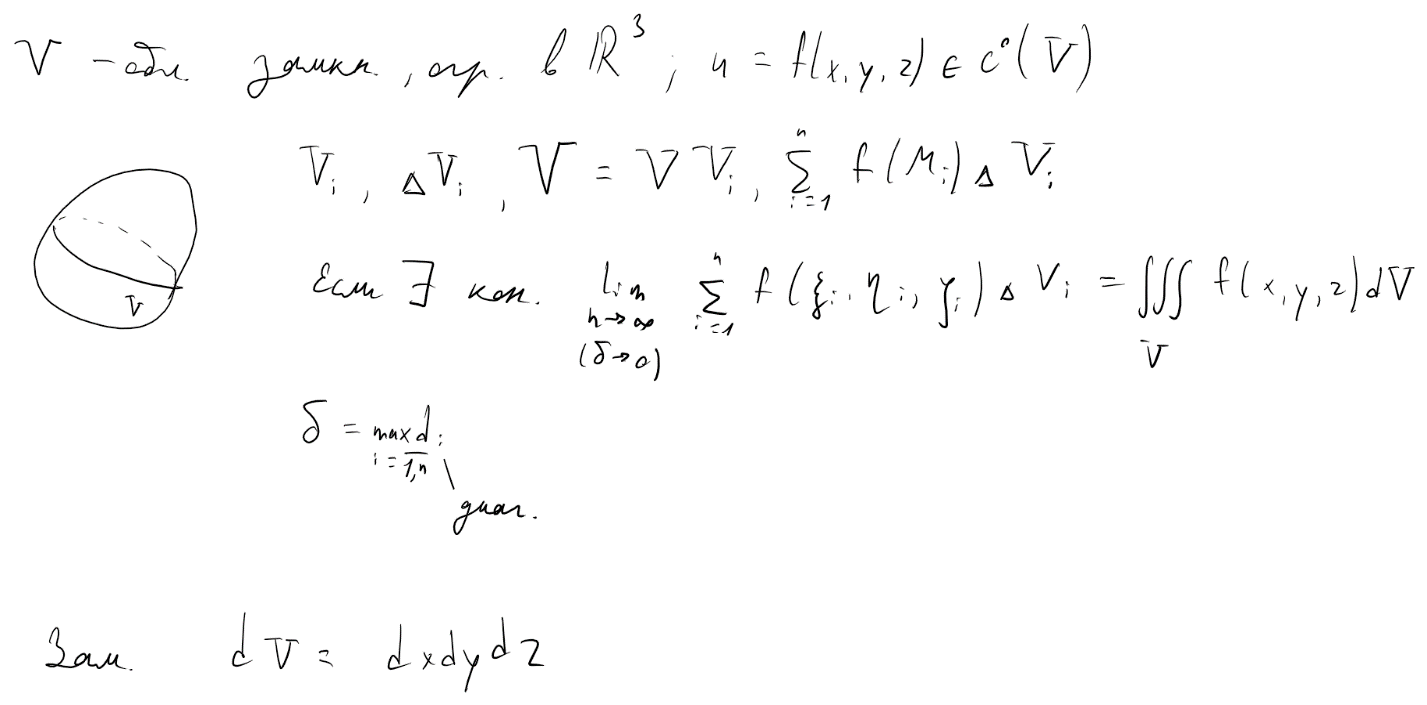 V – обл. замкн., огр. в ℝ³; u = f(x, y, z) ∈ C⁰(V)
V_i, ΔV_i, V = ∪ V_i, ∑_{i=1}^{n} f(M_i) Δ V_i
V
Если ∃ кон. lim_{n→∞ (δ→0)} ∑_{i=1}^{n} f(ξ_i, η_i, ζ_i) Δ V_i = ∭_V f(x, y, z) dV
δ = max_{i=\overline{1,n}} d_i
диаг.
Зам. dV = dxdydz